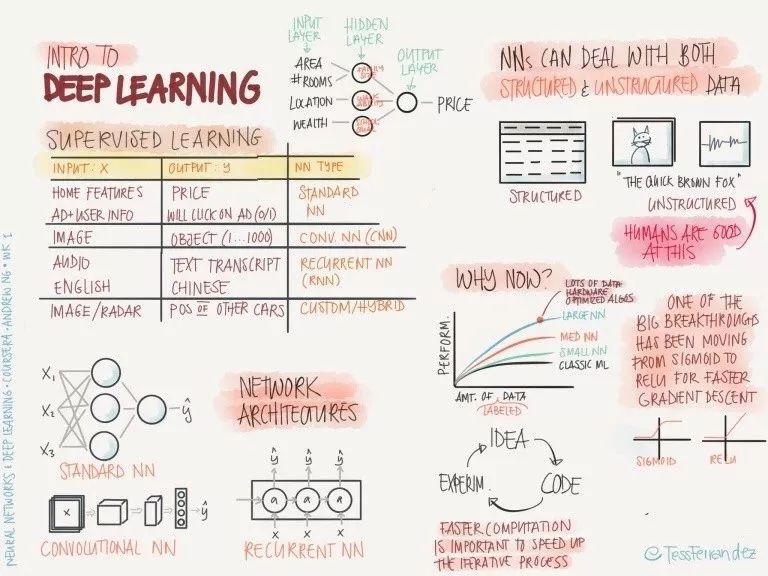 INTRO TO
DEEP LEARNING
INPUT LAYER
HIDDEN LAYER
OUTPUT LAYER
AREA
#ROOMS
LOCATION
WEALTH
PRICE
SUPERVISED LEARNING
INPUT: X OUTPUT: y NN TYPE
HOME FEATURES PRICE STANDARD
AD+USER INFO WILL CLICK ON AD (0/1) NN
IMAGE OBJECT (1...1000) CONV. NN (CNN)
AUDIO TEXT TRANSCRIPT RECURRENT NN
ENGLISH CHINESE (RNN)
IMAGE/RADAR POS OF OTHER CARS CUSTOM/HYBRID
NNs CAN DEAL WITH BOTH
STRUCTURED & UNSTRUCTURED DATA
STRUCTURED
"THE QUICK BROWN FOX"
UNSTRUCTURED
HUMANS ARE GOOD
AT THIS
WHY NOW?
LOTS OF DATA
HARDWARE
OPTIMIZED ALGOS
LARGE NN
MED NN
SMALL NN
CLASSIC ML
PERFORM.
AMT. OF DATA
LABELED
ONE OF THE
BIG BREAKTHROUGHS
HAS BEEN MOVING
FROM SIGMOID TO
RELU FOR FASTER
GRADIENT DESCENT
SIGMOID RELU
IDEA
EXPERIM. CODE
FASTER COMPUTATION
IS IMPORTANT TO SPEED UP
THE ITERATIVE PROCESS
NETWORK
ARCHITECTURES
X₁
X₂ ŷ
X₃
STANDARD NN
X ŷ
CONVOLUTIONAL NN
ŷ ŷ ŷ
a a a
x x x
RECURRENT NN
NEURAL NETWORKS & DEEP LEARNING · COURSERA · ANDREW NG · WK 1
@TessFerrandez